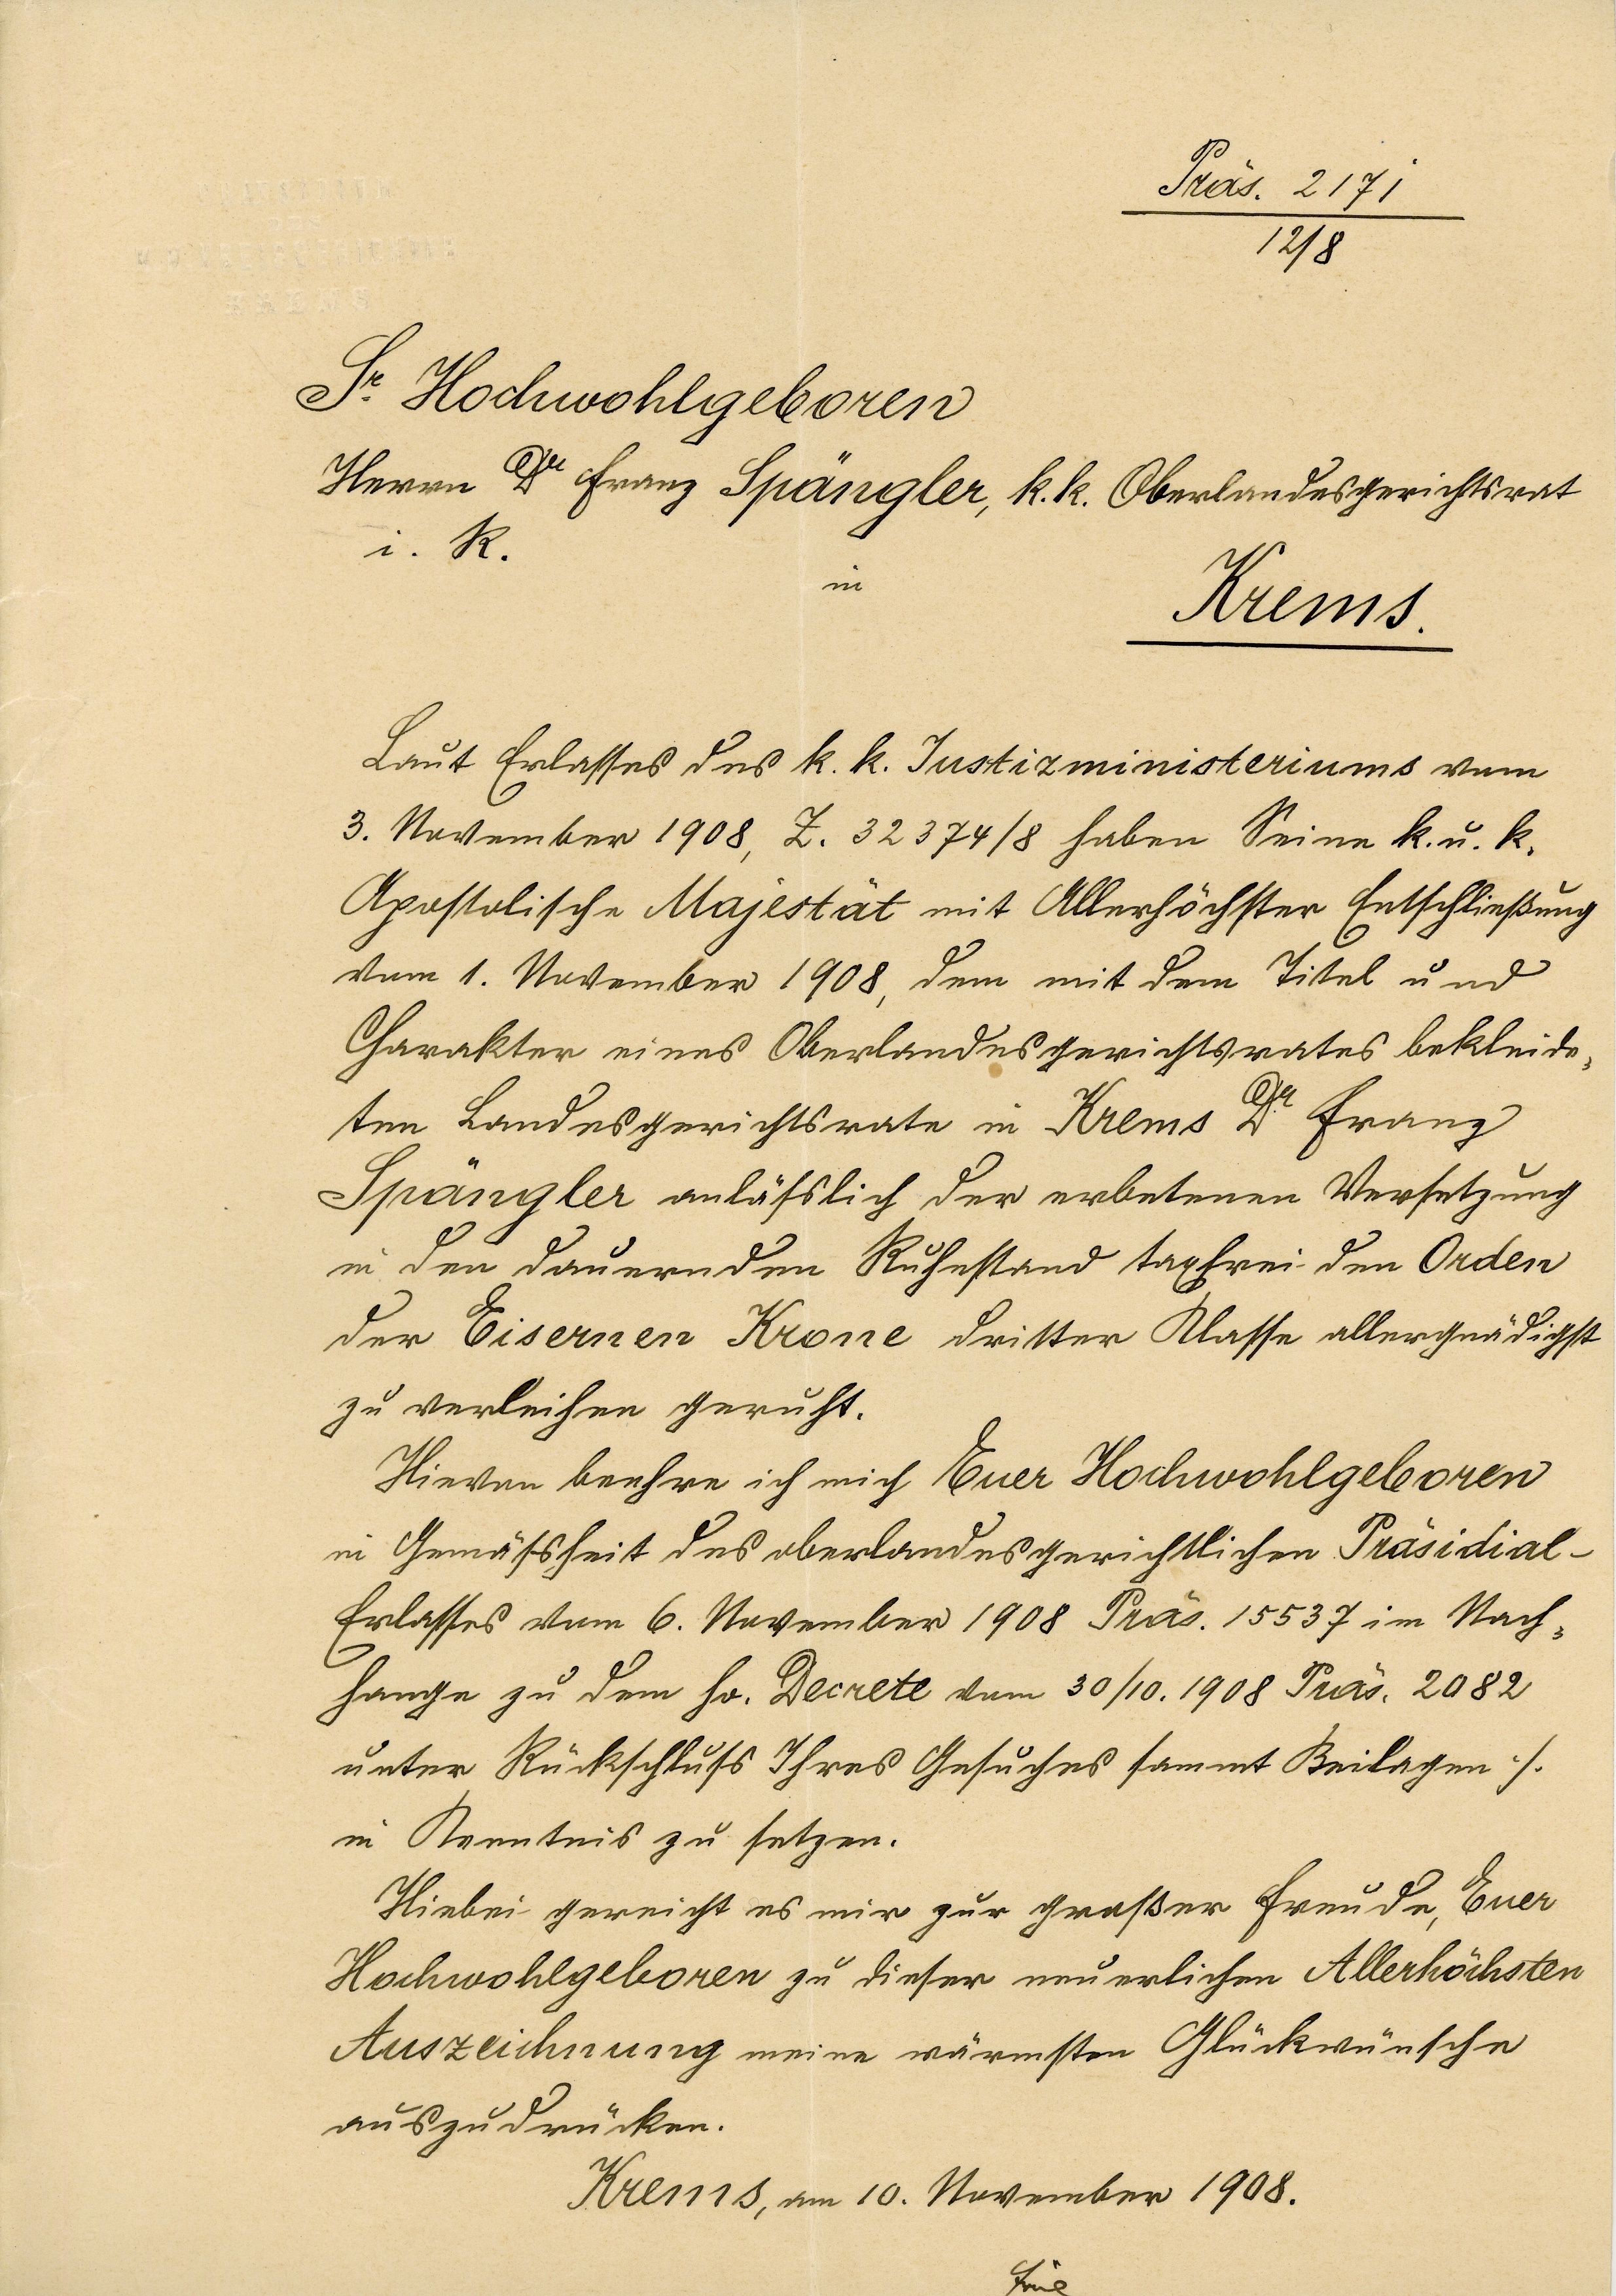 Präs. 2171
12/8
Sr. Hochwohlgeboren
Herrn Dr. Franz Spängler, k.k. Oberlandesgerichtsrat
i. R.
in
Krems.
Laut Erlasses des k. k. Justizministeriums vom
3. November 1908, Z. 32374/8 haben Seine k. u. k.
Apostolische Majestät mit Allerhöchster Entschließung
vom 1. November 1908, dem mit dem Titel und
Charakter eines Oberlandesgerichtsrates bekleide-
ten Landesgerichtsrate in Krems Dr. Franz
Spängler anläßlich der erbetenen Versetzung
in den dauernden Ruhestand taxfrei den Orden
der Eisernen Krone dritter Klasse allergnädigst
zu verleihen geruht.
Hievon beehre ich mich Euer Hochwohlgeboren
in Gemäßheit des oberlandesgerichtlichen Präsidial-
Erlasses vom 6. November 1908 Präs. 15537 im Nach-
hange zu dem ho. Decrete vom 30/10. 1908 Präs. 2082
unter Rückschluß Ihres Gesuches sammt Beilagen ·/.
in Kenntnis zu setzen.
Hiebei gereicht es mir zur großer Freude, Euer
Hochwohlgeboren zu dieser neuerlichen Allerhöchsten
Auszeichnung meine wärmsten Glückwünsche
auszudrücken.
Krems, am 10. November 1908.